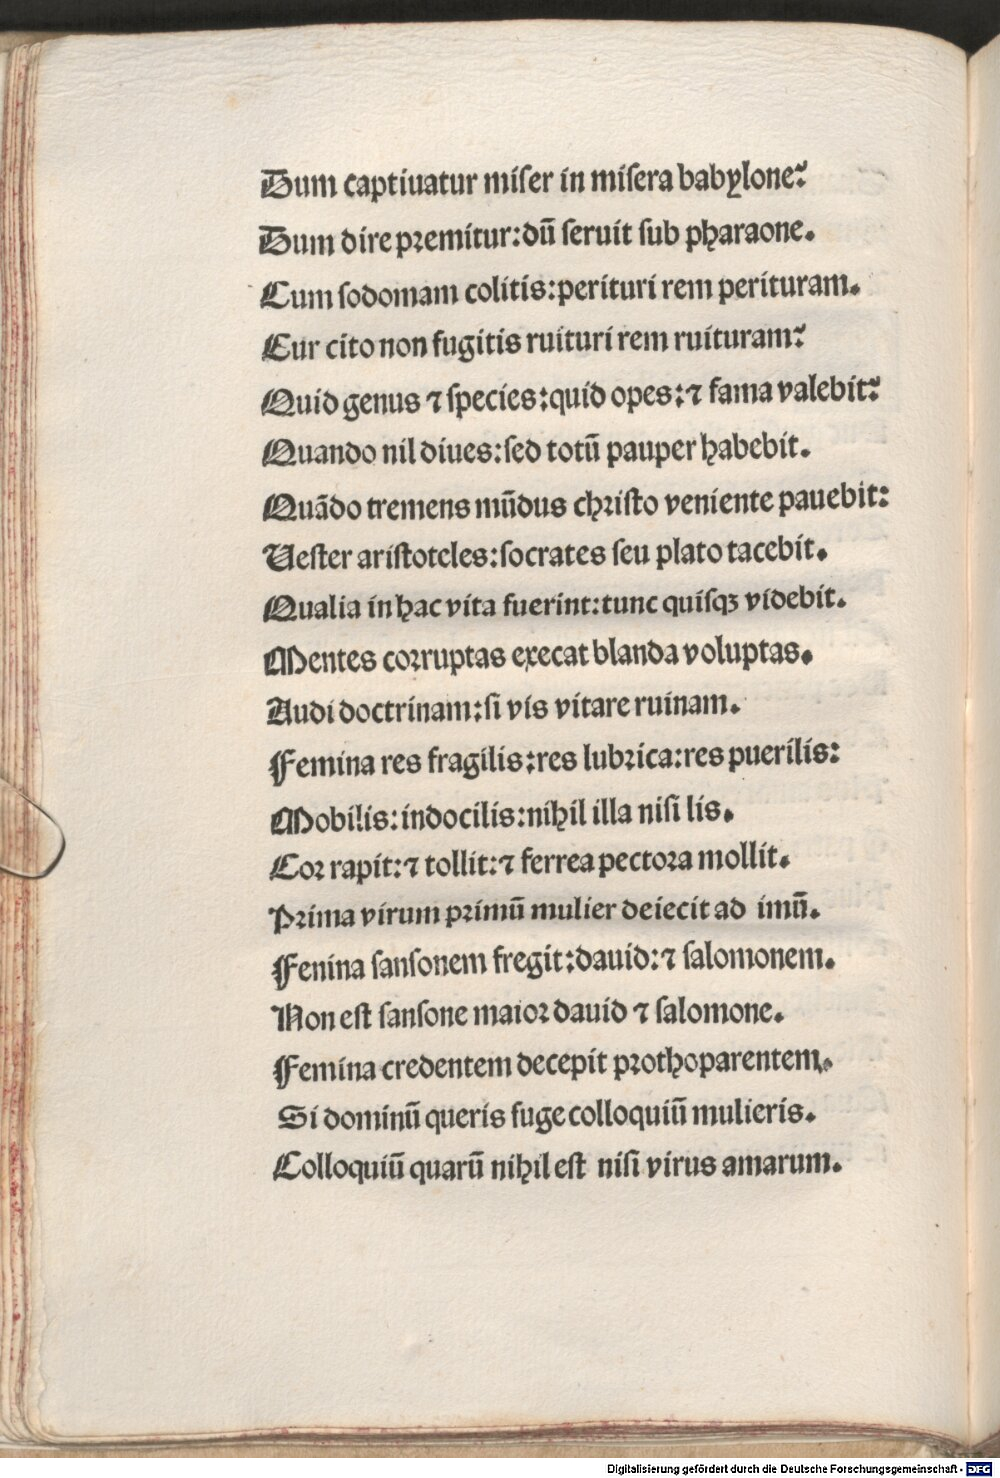 Dum captiuatur miser in misera babylone?
Dum dire premitur:dū seruit sub pharaone.
Cum sodomam colitis:perituri rem perituram.
Cur cito non fugitis ruituri rem ruituram?
Quid genus ⁊ species:quid opes:⁊ fama valebit?
Quando nil diues:sed totū pauper habebit.
Quādo tremens mūdus christo veniente pauebit:
Uester aristoteles:socrates seu plato tacebit.
Qualia in hac vita fuerint:tunc quisqꝫ videbit.
Mentes corruptas execat blanda voluptas.
Audi doctrinam:si vis vitare ruinam.
Femina res fragilis:res lubrica:res puerilis:
Mobilis:indocilis:nihil illa nisi lis.
Cor rapit:⁊ tollit:⁊ ferrea pectora mollit.
Prima virum primū mulier deiecit ad imū.
Fenina sansonem fregit:dauid:⁊ salomonem.
Non est sansone maior dauid ⁊ salomone.
Femina credentem decepit prothoparentem.
Si dominū queris fuge colloquiū mulieris.
Colloquiū quarū nihil est nisi virus amarum.
Digitalisierung gefördert durch die Deutsche Forschungsgemeinschaft - DFG